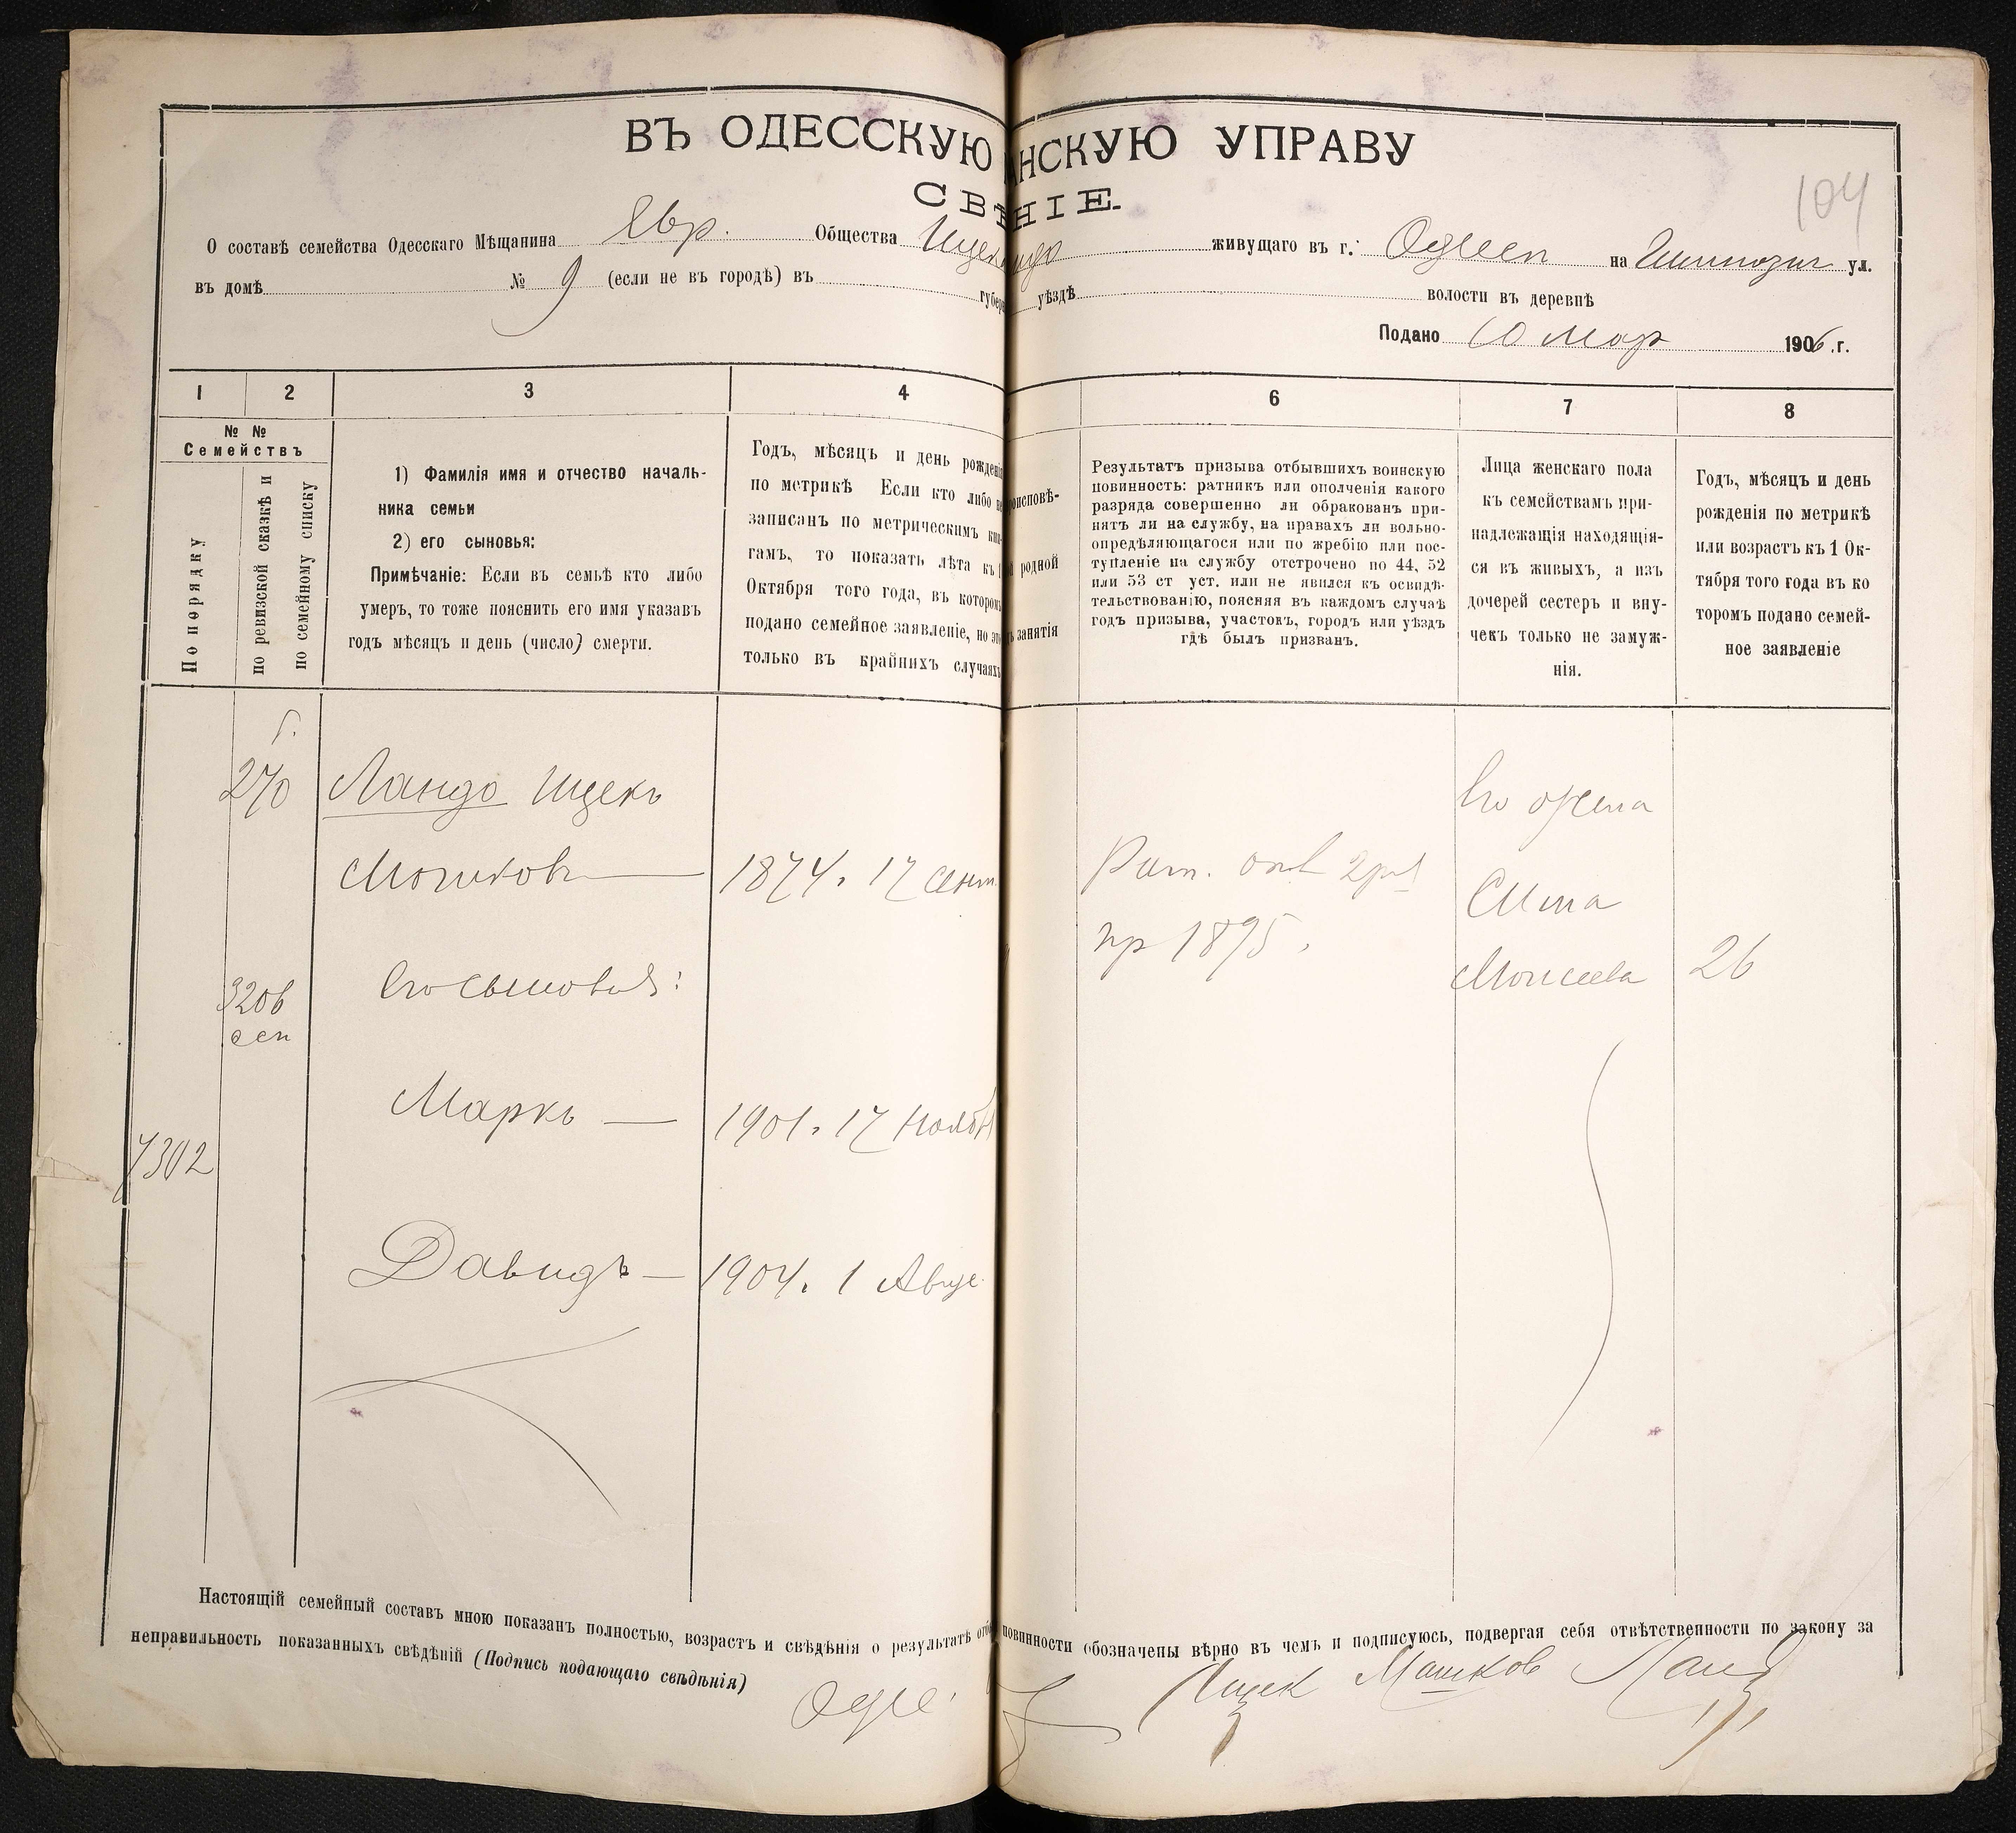 ВЪ ОДЕССКУЮ АНСКУЮ УПРАВУ
СВѢНІЕ.
104
О составѣ семейства Одесскаго Мѣщанина Евр. Общества живущаго въ г. Одессѣ на ул.
въ домѣ № 9 (если не въ городѣ) въ губер уѣздѣ волости въ деревнѣ
Подано 10 Мар 1906 г.
1 2 3 4 6 7 8
№ №
Семействъ
По порядку
по ревизской сказкѣ и
по семейному списку
1) Фамилія имя и отчество началь-
ника семьи
2) его сыновья:
Примѣчаніе: Если въ семьѣ кто либо
умеръ, то тоже пояснить его имя указавъ
годъ мѣсяцъ и день (число) смерти.
Годъ, мѣсяцъ и день рожденія
по метрикѣ Если кто либо не
записанъ по метрическимъ кни-
гамъ, то показать лѣта къ 1
Октября того года, въ которомъ
подано семейное заявленіе, но это
только въ крайнихъ случаяхъ
роисповѣ-
родной
занятія
Результатъ призыва отбывшихъ воинскую
повинность: ратникъ или ополченія какого
разряда совершенно ли обракованъ при-
нятъ ли на службу, на правахъ ли вольно-
опредѣляющагося или по жребію или пос-
тупленіе на службу отсрочено по 44, 52
или 53 ст уст. или не явился къ освидѣ-
тельствованію, поясняя въ каждомъ случаѣ
годъ призыва, участокъ, городъ или уѣздъ
гдѣ былъ призванъ.
Лица женскаго пола
къ семействамъ при-
надлежащія находящія-
ся въ живыхъ, а изъ
дочерей сестеръ и вну-
чекъ только не замуж-
нія.
Годъ, мѣсяцъ и день
рожденія по метрикѣ
или возрастъ къ 1 Ок-
тября того года въ ко
торомъ подано семей-
ное заявленіе
270 Ландо Ицекъ
Его жена
Мошковъ 1874. 17 сент.
Рат. опол 2 раз
пр 1895.
Сима
Моисеева 26
3206
сем
Его сыновья:
Маркъ — 1901. 17 Нояб
7302
Давидъ — 1904. 1 Авгус
Настоящій семейный составъ мною показанъ полностью, возрастъ и свѣдѣнія о результатѣ отб повинности обозначены вѣрно въ чемъ и подписуюсь, подвергая себя отвѣтственности по закону за
неправильность показанныхъ свѣдѣній (Подпись подающаго свѣдѣнія)
Ицек Машков Ланд